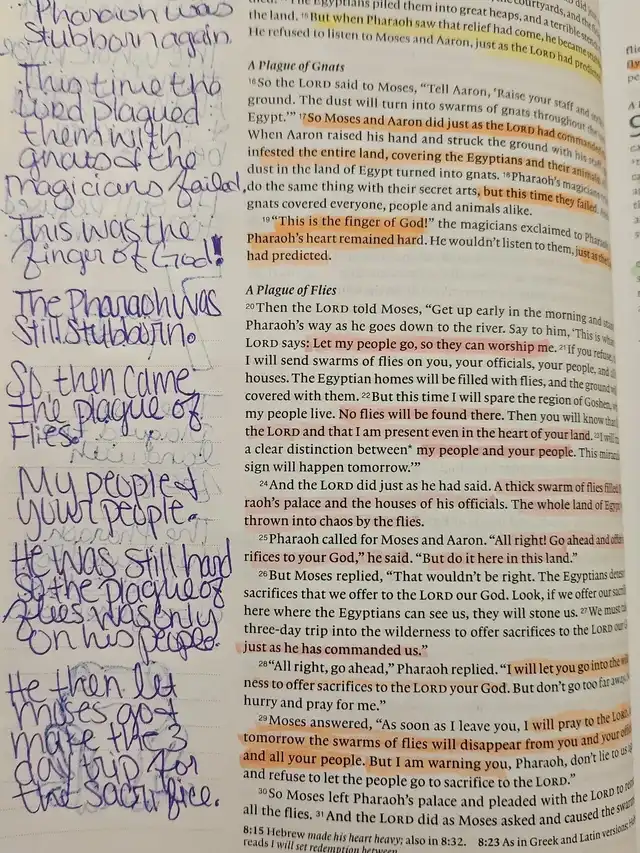 Pharaoh was
stubborn again.
This time the
Lord plagued
them with
gnats & the
magicians failed.
This was the
finger of God!
The Pharaoh was
still stubborn.
So, then came
the plague of
Flies.
My people &
your people.
He was still hard
so the plague of
flies was only
on his people.
He then let
Moses go &
make the 3
day trip for
the sacrifice.
Egyptians piled them into great heaps, and a terrible
the land. 15 But when Pharaoh saw that relief had come, he became
He refused to listen to Moses and Aaron, just as the LORD had predicted
A Plague of Gnats
16 So the LORD said to Moses, “Tell Aaron, ‘Raise your staff and
ground. The dust will turn into swarms of gnats throughout the
Egypt.’” 17 So Moses and Aaron did just as the LORD had commanded
When Aaron raised his hand and struck the ground with his
infested the entire land, covering the Egyptians and their animals.
dust in the land of Egypt turned into gnats. 18 Pharaoh’s magicians
do the same thing with their secret arts, but this time they failed.
gnats covered everyone, people and animals alike.
19 “This is the finger of God!” the magicians exclaimed to Pharaoh
Pharaoh’s heart remained hard. He wouldn’t listen to them, just as the
had predicted.
A Plague of Flies
20 Then the LORD told Moses, “Get up early in the morning and
Pharaoh’s way as he goes down to the river. Say to him, ‘This is what
LORD says: Let my people go, so they can worship me. 21 If you refuse,
I will send swarms of flies on you, your officials, your people, and
houses. The Egyptian homes will be filled with flies, and the ground
covered with them. 22 But this time I will spare the region of Goshen,
my people live. No flies will be found there. Then you will know that
the LORD and that I am present even in the heart of your land. 23 I will
a clear distinction between* my people and your people. This
sign will happen tomorrow.’”
24 And the LORD did just as he had said. A thick swarm of flies filled
raoh’s palace and the houses of his officials. The whole land of Egypt
thrown into chaos by the flies.
25 Pharaoh called for Moses and Aaron. “All right! Go ahead and
rifices to your God,” he said. “But do it here in this land.”
26 But Moses replied, “That wouldn’t be right. The Egyptians
sacrifices that we offer to the LORD our God. Look, if we offer our
here where the Egyptians can see us, they will stone us. 27 We must
three-day trip into the wilderness to offer sacrifices to the LORD our
just as he has commanded us.”
28 “All right, go ahead,” Pharaoh replied. “I will let you go into the
ness to offer sacrifices to the LORD your God. But don’t go too far away.
hurry and pray for me.”
29 Moses answered, “As soon as I leave you, I will pray to the LORD,
tomorrow the swarms of flies will disappear from you and your
and all your people. But I am warning you, Pharaoh, don’t lie to us
and refuse to let the people go to sacrifice to the LORD.”
30 So Moses left Pharaoh’s palace and pleaded with the LORD to
all the flies. 31 And the LORD did as Moses asked and caused the
8:15 Hebrew made his heart heavy; also in 8:32. 8:23 As in Greek and Latin versions;
reads I will set redemption between.